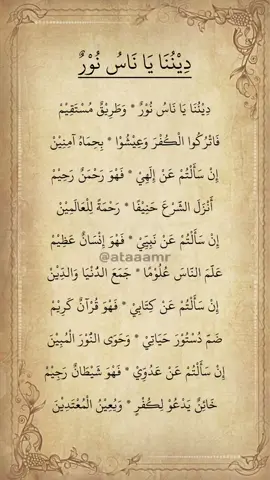 دِيْنُنَا يَا نَاسُ نُوْرٌ
دِيْنُنَا يَا نَاسُ نُوْرٌ * وَطَرِيْقٌ مُسْتَقِيْمْ
فَاتْرُكُوا الْكُفْرَ وَعِيْشُوْا * بِحِمَاهُ آمِنِيْنْ
إِنْ سَأَلْتُمْ عَنْ إِلَهِيْ * فَهْوَ رَحْمَنٌ رَحِيْمْ
أَنْزَلَ الشَّرْعَ حَنِيْفًا * رَحْمَةً لِلْعَالَمِيْنْ
إِنْ سَأَلْتُمْ عَنْ نَبِيِّيْ * فَهْوَ إِنْسَانٌ عَظِيْمْ
@ataaamr
عَلَّمَ النَّاسَ عُلُوْمًا * جَمَعَ الدُّنْيَا وَالدِّيْنْ
إِنْ سَأَلْتُمْ عَنْ كِتَابِيْ * فَهْوَ قُرْآنٌ كَرِيْمْ
ضَمَّ دُسْتُوْرَ حَيَاتِيْ * وَحَوَى النُّوْرَ الْمُبِيْنْ
إِنْ سَأَلْتُمْ عَنْ عَدُوِّيْ * فَهْوَ شَيْطَانٌ رَجِيْمْ
خَائِنٌ يَدْعُوْ لِكُفْرٍ * وَيُعِيْنُ الْمُعْتَدِيْنْ